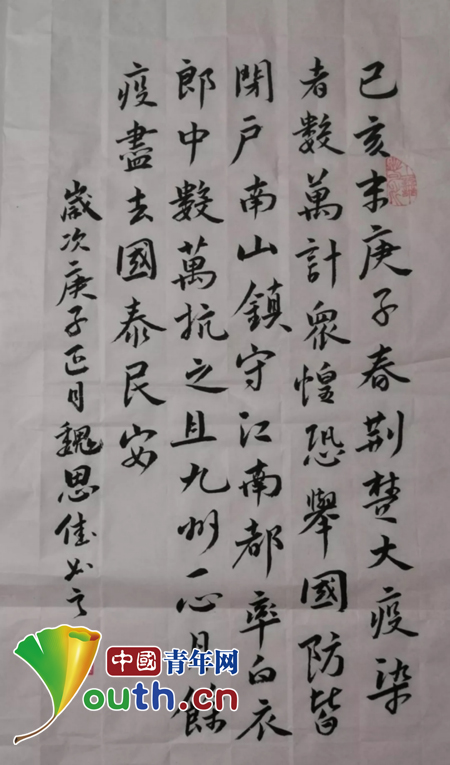 己亥末庚子春荆楚大疫染
者數萬計眾惶恐舉國防皆
閉戶南山鎮守江南都率白衣
郎中數萬抗之且九州一心月餘
疫盡去國泰民安
歲次庚子正月魏思佳書
中國青年网
youth.cn